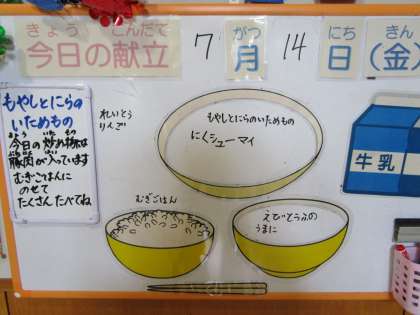 きょう こんだて
今日の献立
7
がつ
月
14
にち
日
きん
(金)
もやしとにらの
いためもの
きょう いた もの
今日の炒め物は
ぶたにく はい
豚肉が入っています
むぎごはんに
のせて
たくさんたべてね
れいとう
りんご
もやしとにらのいためもの
にくシューマイ
牛乳
むぎごはん
えびとうふの
うまに